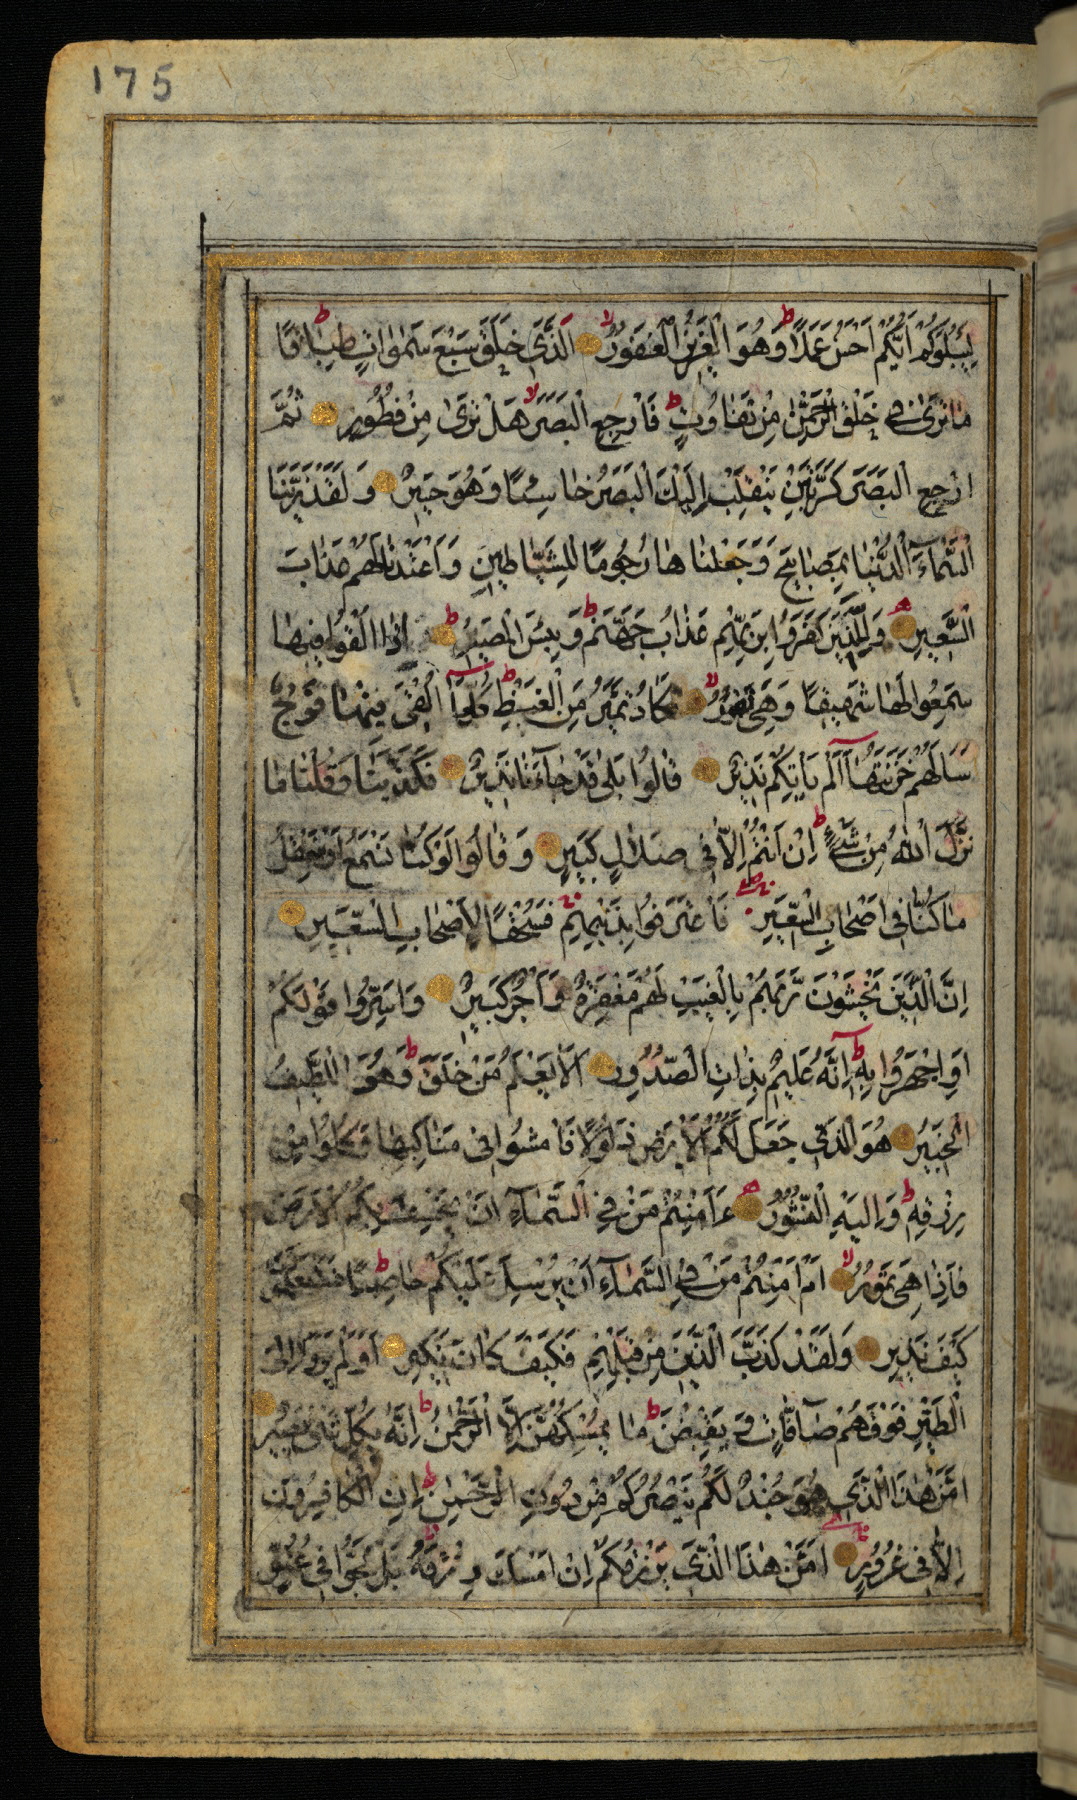 175
لِيَبْلُوَكُمْ اَيُّكُمْ اَحْسَنُ عَمَلًا ط وَهُوَ الْعَزِيزُ الْغَفُورُ لا اَلَّذِى خَلَقَ سَبْعَ سَمٰوَاتٍ طِبَاقًا ط
مَا تَرٰى فِى خَلْقِ الرَّحْمٰنِ مِنْ تَفَاوُتٍ ط فَارْجِعِ الْبَصَرَ لا هَلْ تَرٰى مِنْ فُطُورٍ ثُمَّ
ارْجِعِ الْبَصَرَ كَرَّتَيْنِ يَنْقَلِبْ اِلَيْكَ الْبَصَرُ خَاسِئًا وَهُوَ حَسِيرٌ وَلَقَدْ زَيَّنَّا
السَّمَآءَ الدُّنْيَا بِمَصَابِيحَ وَجَعَلْنَاهَا رُجُومًا لِلشَّيَاطِينِ وَاَعْتَدْنَا لَهُمْ عَذَابَ
السَّعِيرِ وَلِلَّذِينَ كَفَرُوا بِرَبِّهِمْ عَذَابُ جَهَنَّمَ ط وَبِئْسَ الْمَصِيرُ ط اِذَا اُلْقُوا فِيهَا
سَمِعُوا لَهَا شَهِيقًا وَهِىَ تَفُورُ لا تَكَادُ تَمَيَّزُ مِنَ الْغَيْظِ ط كُلَّمَآ اُلْقِىَ فِيهَا فَوْجٌ
سَاَلَهُمْ خَزَنَتُهَآ اَلَمْ يَاْتِكُمْ نَذِيرٌ قَالُوا بَلٰى قَدْ جَآءَنَا نَذِيرٌ فَكَذَّبْنَا وَقُلْنَا مَا
نَزَّلَ اللّٰهُ مِنْ شَىْءٍ ط اِنْ اَنْتُمْ اِلَّا فِى ضَلَالٍ كَبِيرٍ وَقَالُوا لَوْ كُنَّا نَسْمَعُ اَوْ نَعْقِلُ
مَا كُنَّا فِى اَصْحَابِ السَّعِيرِ فَاعْتَرَفُوا بِذَنْبِهِمْ فَسُحْقًا لِاَصْحَابِ السَّعِيرِ
اِنَّ الَّذِينَ يَخْشَوْنَ رَبَّهُمْ بِالْغَيْبِ لَهُمْ مَغْفِرَةٌ وَاَجْرٌ كَبِيرٌ وَاَسِرُّوا قَوْلَكُمْ
اَوِ اجْهَرُوا بِهِ ط اِنَّهُ عَلِيمٌ بِذَاتِ الصُّدُورِ اَلَا يَعْلَمُ مَنْ خَلَقَ ط وَهُوَ اللَّطِيفُ
الْخَبِيرُ هُوَ الَّذِى جَعَلَ لَكُمُ الْاَرْضَ ذَلُولًا فَامْشُوا فِى مَنَاكِبِهَا وَكُلُوا مِنْ
رِزْقِهِ ط وَاِلَيْهِ النُّشُورُ ءَاَمِنْتُمْ مَنْ فِى السَّمَآءِ اَنْ يَخْسِفَ بِكُمُ الْاَرْضَ
فَاِذَا هِىَ تَمُورُ لا اَمْ اَمِنْتُمْ مَنْ فِى السَّمَآءِ اَنْ يُرْسِلَ عَلَيْكُمْ حَاصِبًا ط فَسَتَعْلَمُونَ
كَيْفَ نَذِيرِ وَلَقَدْ كَذَّبَ الَّذِينَ مِنْ قَبْلِهِمْ فَكَيْفَ كَانَ نَكِيرِ اَوَلَمْ يَرَوْا اِلَى
الطَّيْرِ فَوْقَهُمْ صَآفَّاتٍ وَيَقْبِضْنَ ط مَا يُمْسِكُهُنَّ اِلَّا الرَّحْمٰنُ ط اِنَّهُ بِكُلِّ شَىْءٍ بَصِيرٌ
اَمَّنْ هٰذَا الَّذِى هُوَ جُنْدٌ لَكُمْ يَنْصُرُكُمْ مِنْ دُونِ الرَّحْمٰنِ ط اِنِ الْكَافِرُونَ
اِلَّا فِى غُرُورٍ اَمَّنْ هٰذَا الَّذِى يَرْزُقُكُمْ اِنْ اَمْسَكَ رِزْقَهُ بَلْ لَجُّوا فِى عُتُوٍّ